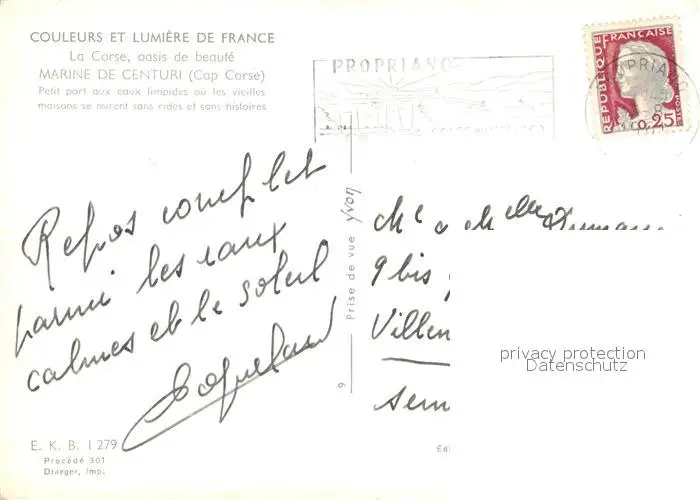 COULEURS ET LUMIÈRE DE FRANCE
La Corse, oasis de beauté
MARINE DE CENTURI (Cap Corse)
Petit port aux eaux limpides où les vieilles
maisons se mirent sans rides et sans histoires
PROPRIANO
RÉPUBLIQUE FRANÇAISE
0,25
POSTES
Repos complet
parmi les eaux
calmes et le soleil
Prise de vue yvon
9 bis
Villen
privacy protection
Datenschutz
6
E. K. B. 1 279
Procédé 301
Draeger, Imp.
Ed